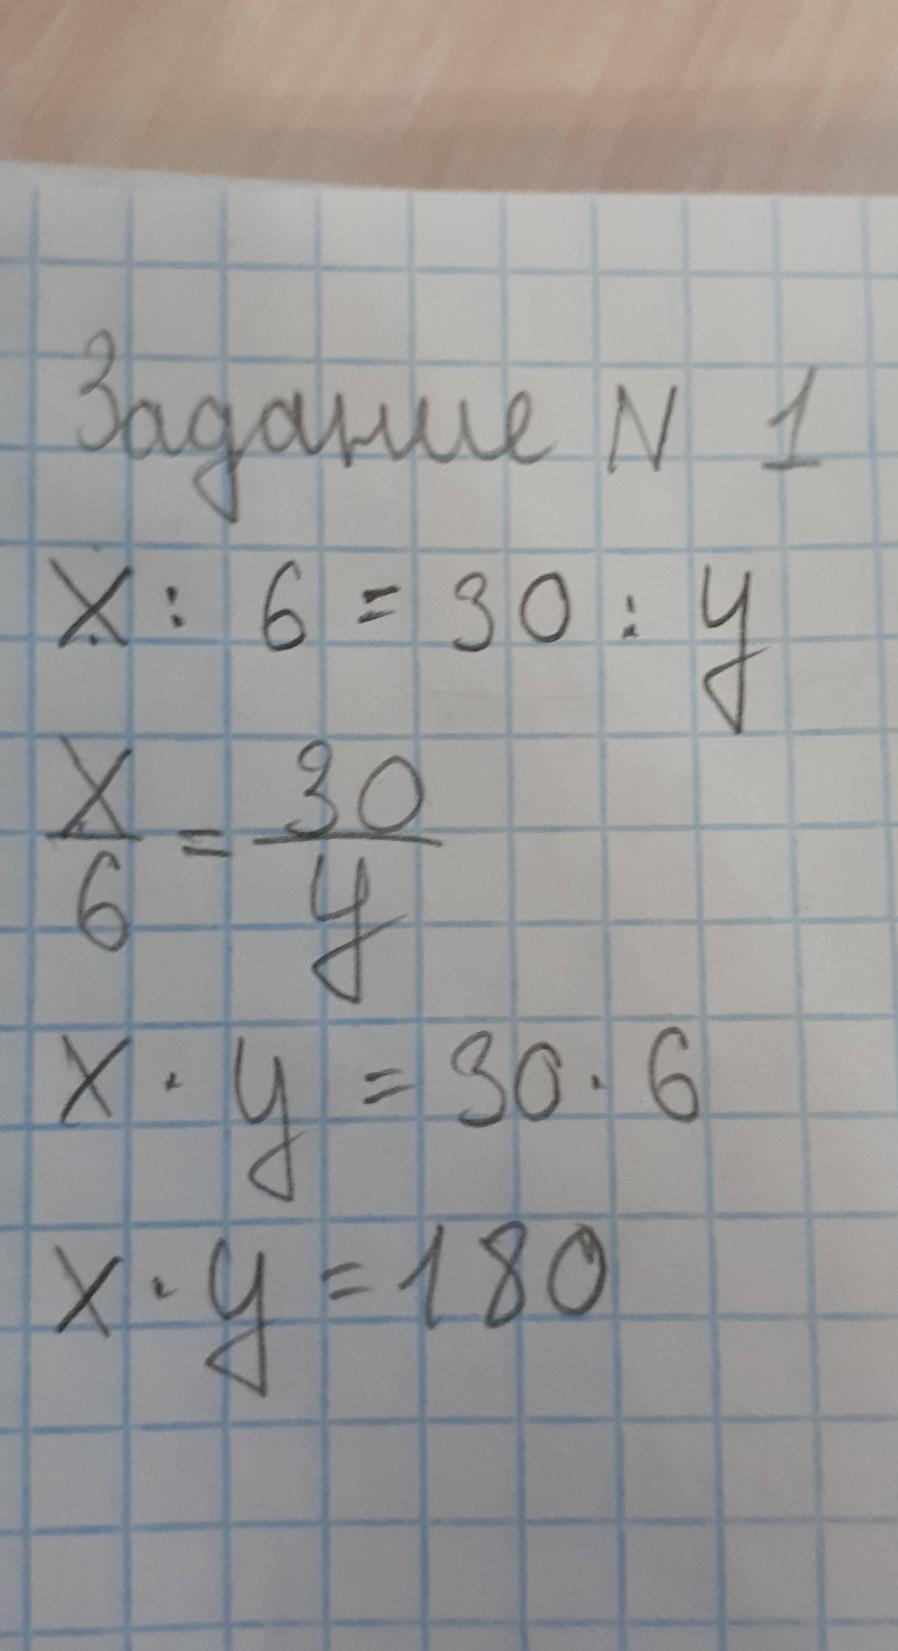 Задание N 1
x : 6 = 30 : y
x/6 = 30/y
x · y = 30 · 6
x · y = 180